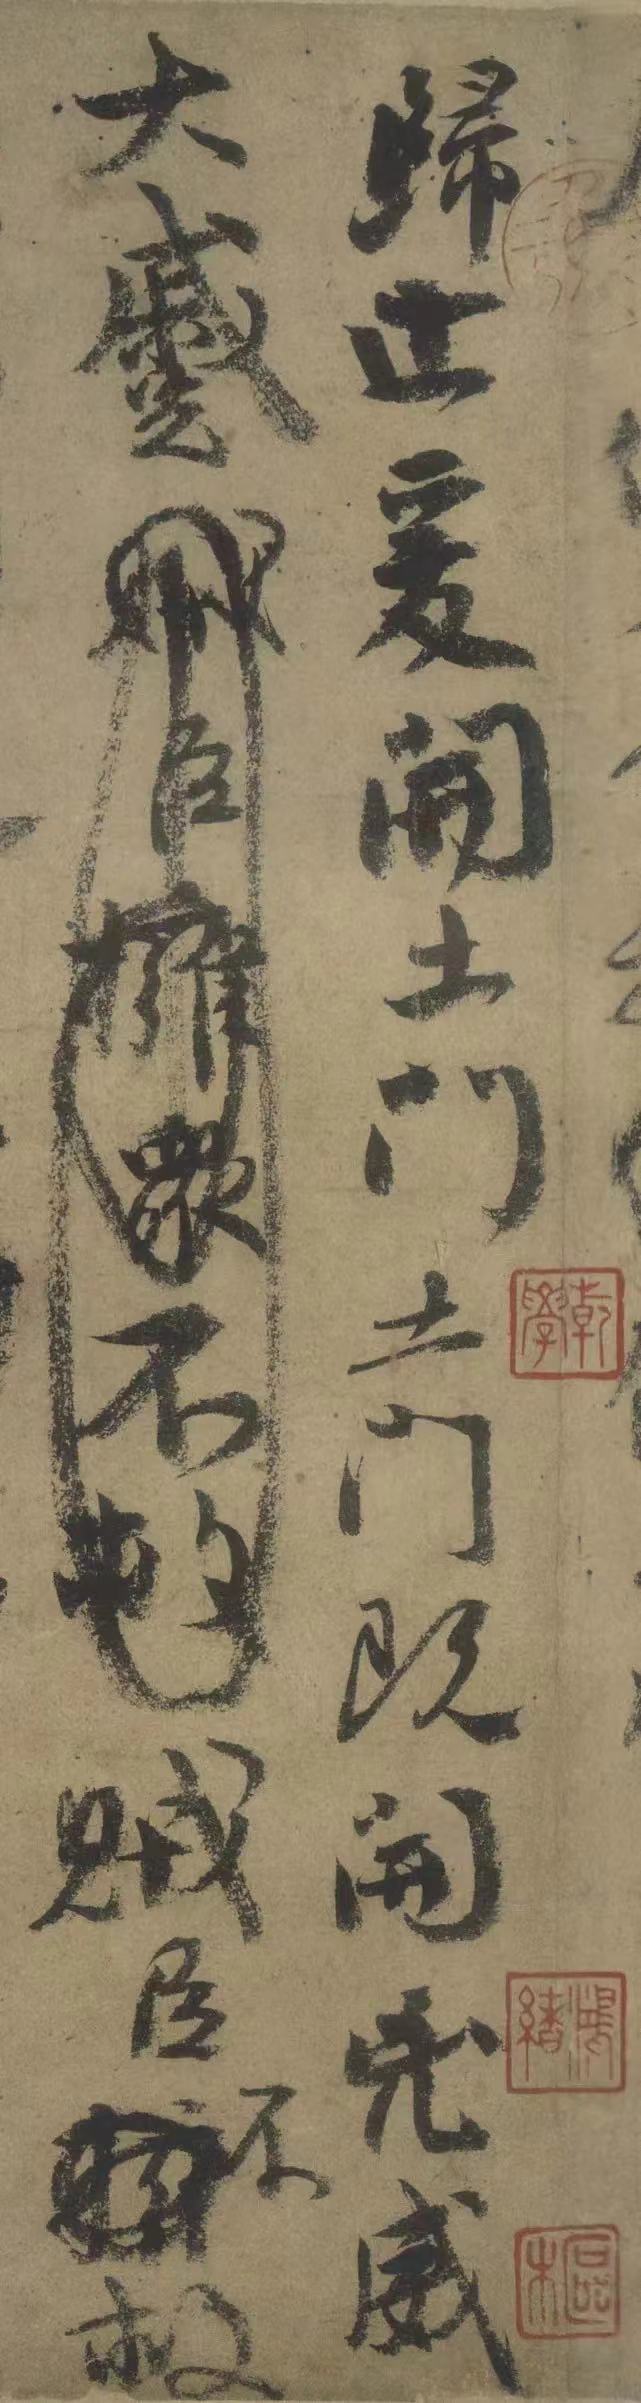 歸止爰開土門土門既開凶威
大蹙賊臣擁衆不救賊臣不救
乾學